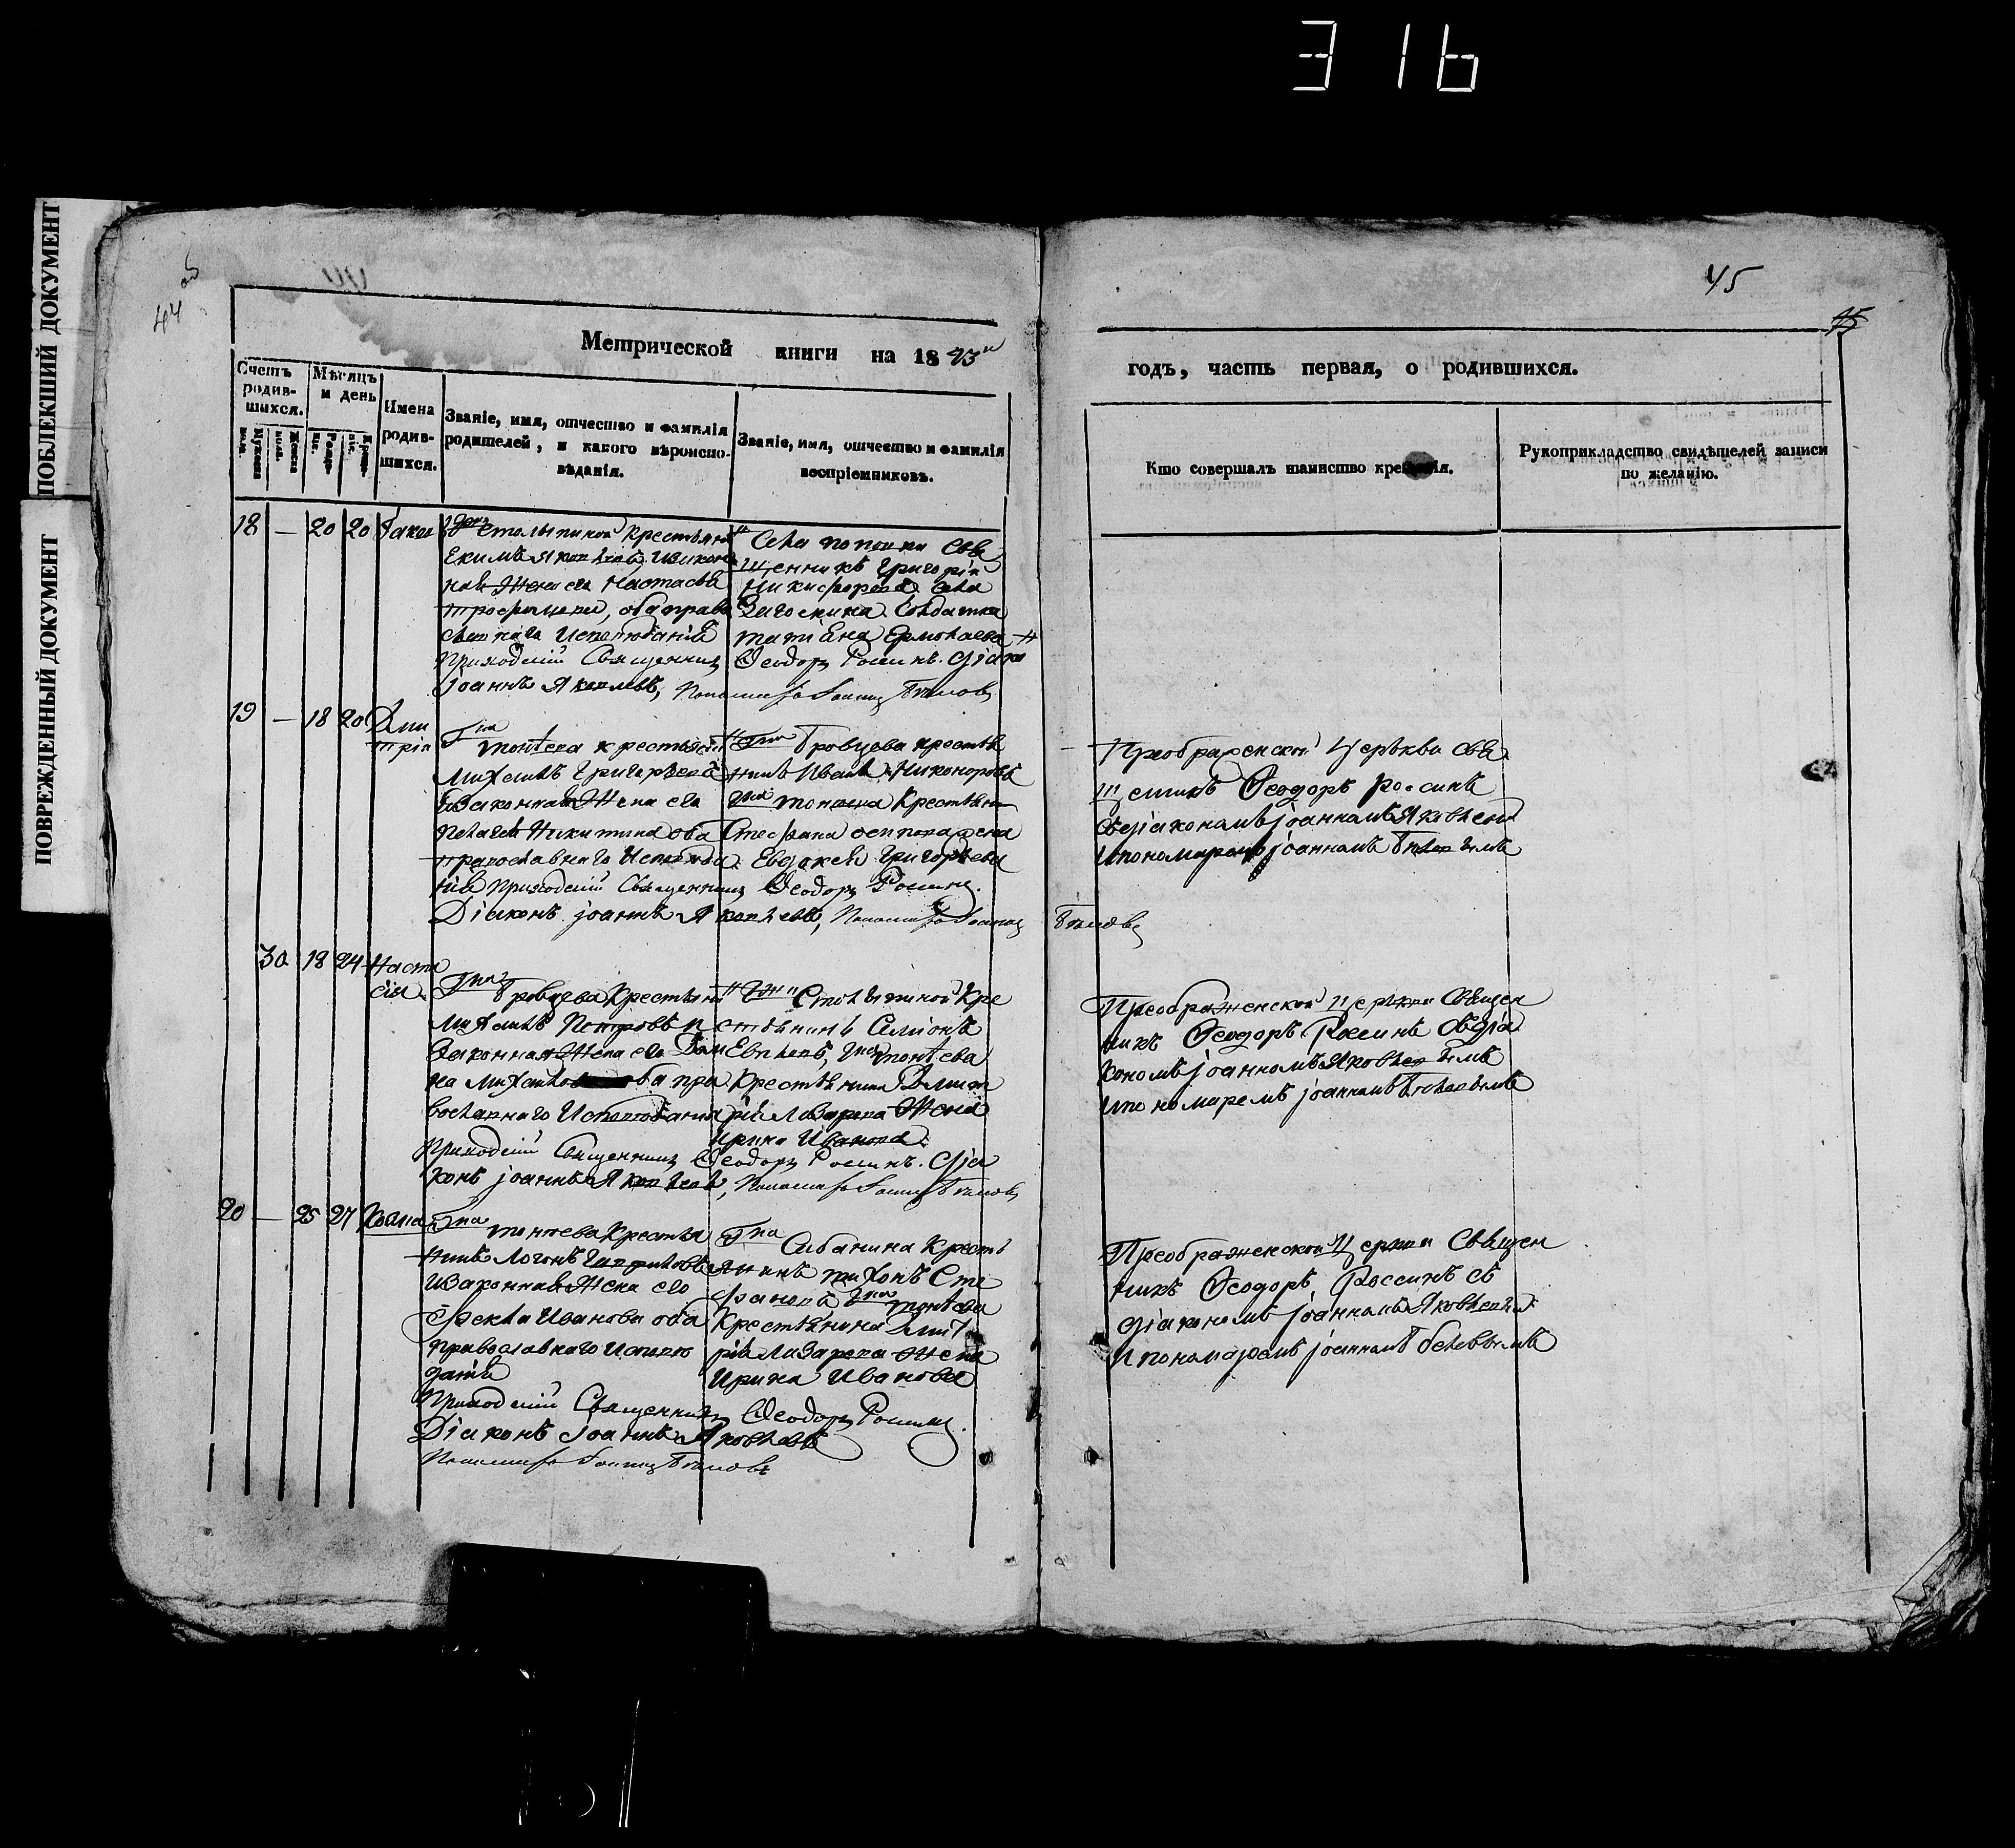 316
ПОБЛЕКШИЙ ДОКУМЕНТ
ПОВРЕЖДЕННЫЙ ДОКУМЕНТ
44 об
45
Метрической книги на 1843й
годъ, часть первая, о родившихся.
Счетъ родив-
шихся.
Мѣсяцъ
и день
Имена
родив-
шихся.
Званіе, имя, отчество и фамилія
родителей, и какого вѣроиспо-
вѣданія.
Званіе, имя, отчество и фамилія
воспріемниковъ.
Кто совершалъ таинство крещенія.
Рукоприкладство свидѣтелей записи
по желанію.
18 — 20 20
Столыпиной Крестьяни
Екимъ Яковлевъ, изакон
ная Жена его Настасья
обаправо
славнаго Исповѣданія
Села поповки Свя
щенникъ Григорій
Никифоровъ Села
Загоскина Солдатка
татиана Ермолаева
Приходскій Священникъ Ѳеодоръ Россинъ. Діако
іоаннъ Яковлевъ, Пономарь Іоаннъ Бѣловъ
19 — 18 20 Дми
трій
Гна тонтева крестьян
Михаилъ Григорьевъ
изаконная Жена его
Пелагея Никитина оба
православнаго Исповѣда
нія
Гна Бровцева крестья
нинъ Иванъ Никоноровъ
Гна тонтева Крестьян
Стефана
Евдокея Григорьева
Приходскій Священникъ Ѳеодоръ Россинъ.
Діаконъ іоаннъ Яковлевъ, Пономарь Іоаннъ Бѣловъ
Преображенской Церькви Свя
щенникъ Ѳеодоръ Россинъ
Сдіакономъ іоанномъ Яковлевы
Ипономаремъ іоанномъ Бѣловымъ
30 18 24 Наста
сія
Гна Бровцева Крестьяни
Михаилъ Петровъ и
Законная Жена его Дом
на Михайлова оба пра
вославнаго Исповѣданія
Гжи Столыпиной Кре
стьянинъ Симіонъ
Гна тонтева
Крестьянина Димит
рія Лазарева Жена
Ирина Иванова.
Приходскій Священникъ Ѳеодоръ Россинъ. Діа
конъ іоаннъ Яковлевъ, Пономарь Іоаннъ Бѣловъ
Преображенской Церькви Священ
никъ Ѳеодоръ Россинъ Сдіа
кономъ іоанномъ Яковлевымъ
Ипономаремъ іоанномъ Бѣловымъ
20 — 25 27
Гна тонтева Крестья
нинъ Логинъ Гавриловъ
изаконная Жена его
Ѳекла Иванова оба
православнаго Исповѣ
данія
Гна Сабанина Кресть
янинъ тихонъ Сте
фановъ Гна тонтева
Крестьянина Дмит
рія Лазарева Жена
Ирина Иванова
Приходскій Священникъ Ѳеодоръ Россинъ.
Діаконъ Іоаннъ Яковлевъ
Пономарь Іоаннъ Бѣловъ
Преображенской Церкви Священ
никъ Ѳеодоръ Россинъ съ
діакономъ іоанномъ Яковлевымъ
Ипономаремъ іоанномъ Белевымъ